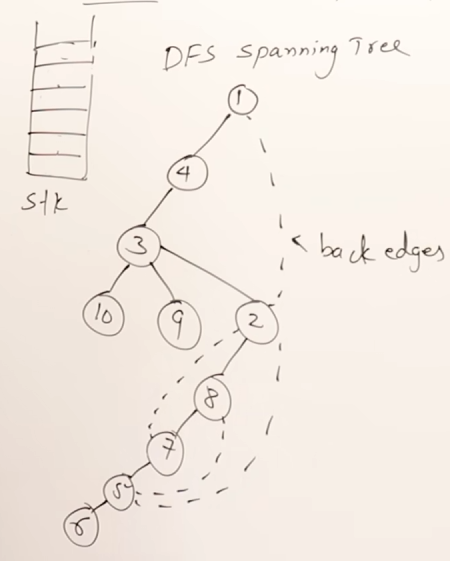 DFS Spanning Tree
1
4
stk
3
back edges
10
9
2
8
7
5
6